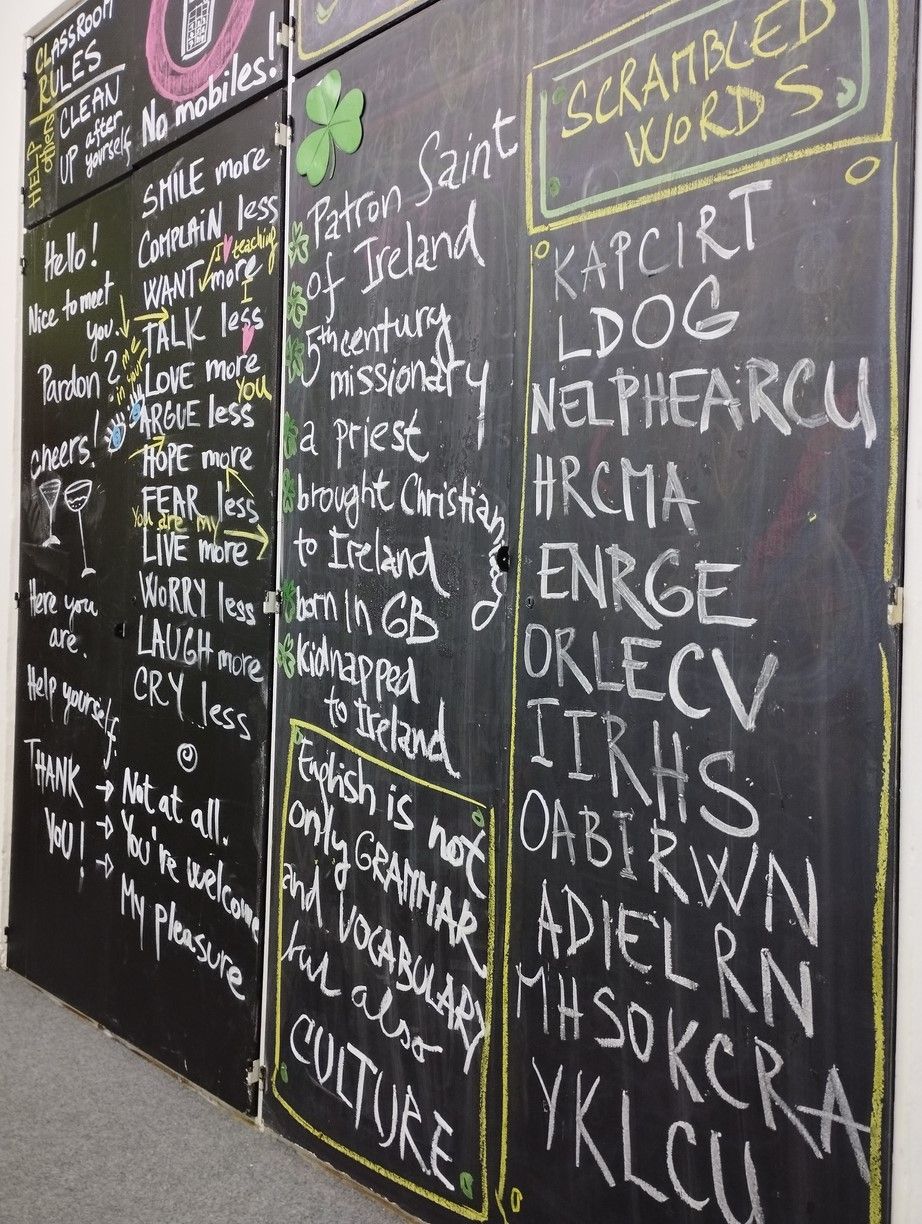 CLASSROOM
RULES
HELP
others
CLEAN
UP after
yourself
No mobiles!
Hello!
Nice to meet
you.
Pardon?
cheers!
Here you
are.
Help yourself.
THANK
YOU!
→ Not at all.
→ You're welcome
→ My pleasure
SMILE more
COMPLAIN less
I ♥ teaching
WANT more
I
TALK less
me
in your
LOVE more
YOU
ARGUE less
HOPE more
FEAR less
You are my
LIVE more
WORRY less
LAUGH more
CRY less
Patron Saint
of Ireland
5th century
missionary
a priest
brought Christianity
to Ireland
born in GB
kidnapped
to Ireland
English is not
only GRAMMAR
and VOCABULARY
but also
CULTURE
SCRAMBLED
WORDS
KAPCIRT
LDOG
NELPHEARCU
HRCMA
ENRGE
ORLECV
ITRHS
OABIRWN
ADIELRN
MHSOKCRA
YKLCU